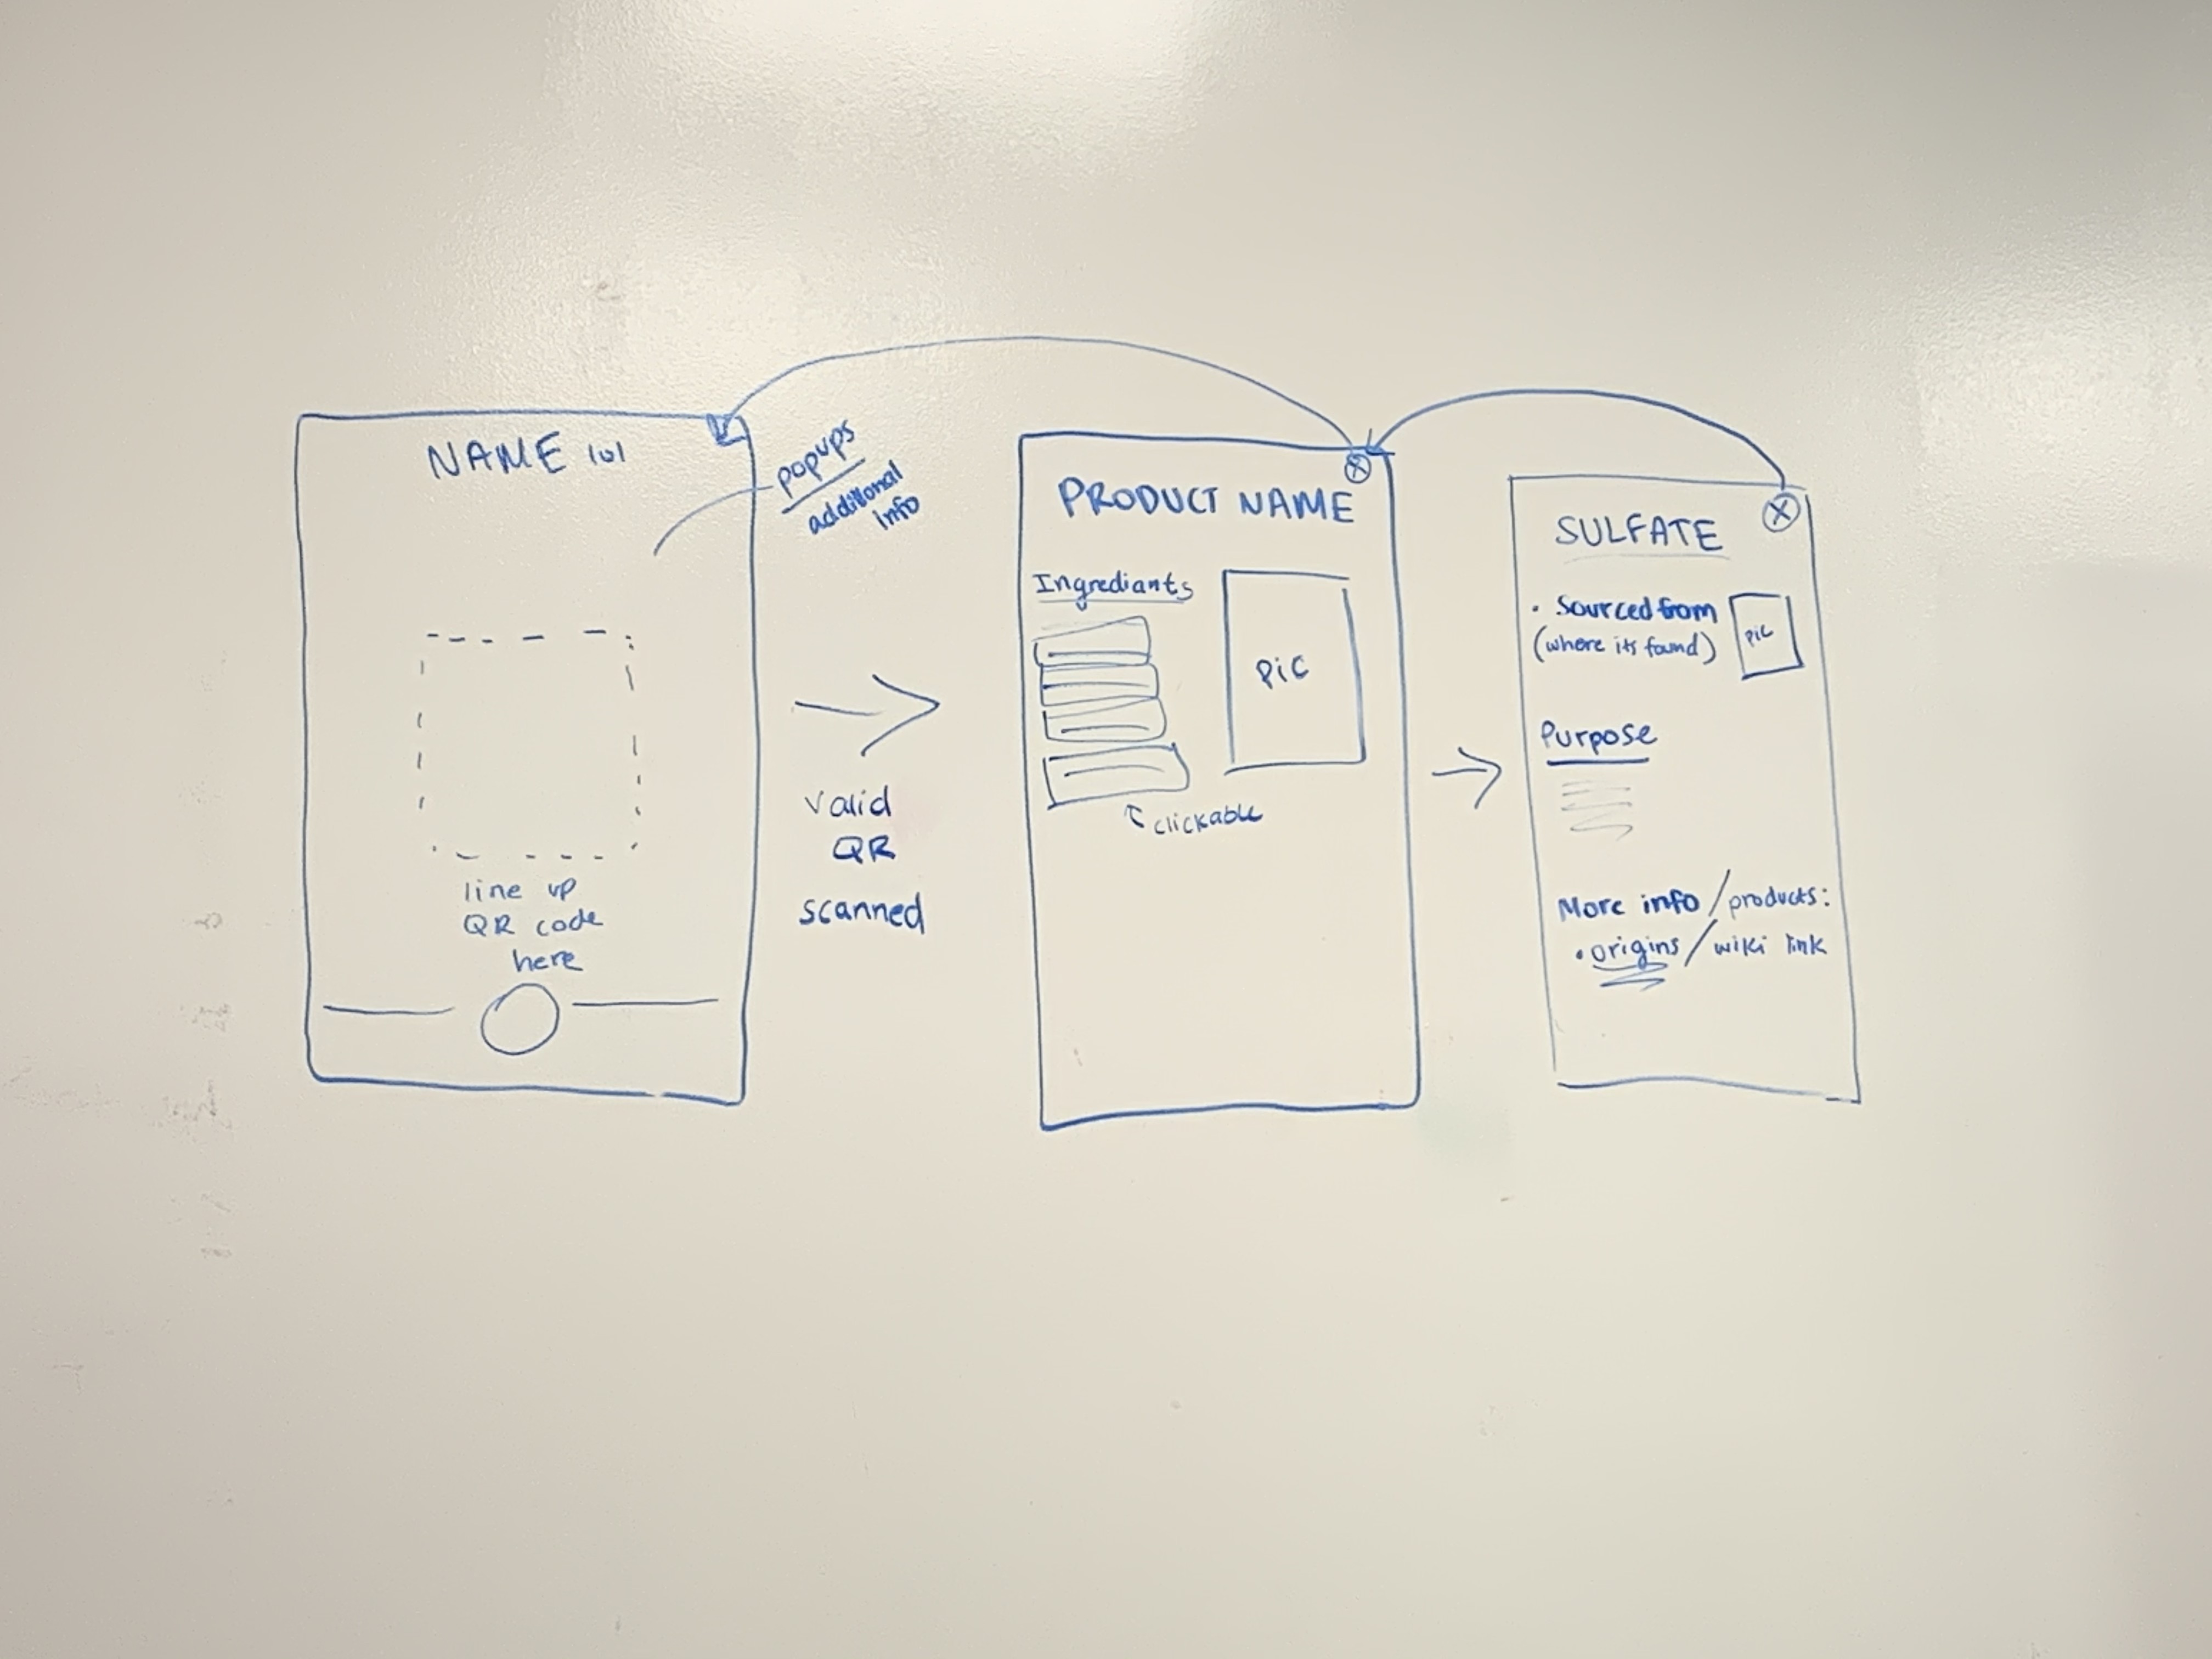 NAME 101
popups
additional
info
line up
QR code
here
valid
QR
scanned
PRODUCT NAME
Ingrediants
PiC
clickable
SULFATE
• Sourced from
(where its found)
PiC
Purpose
More info / products:
• origins / wiki link